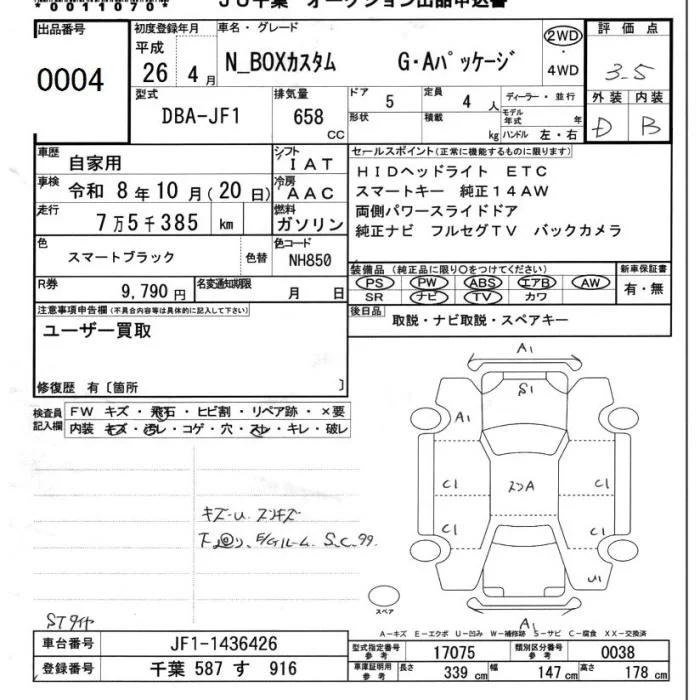 *0011070*
JU千葉 オークション出品申込書
出品番号
0004
初度登録年月
平成
26 4 月
車名・グレード
N_BOXカスタム G・Aパッケージ
2WD
・
4WD
評 価 点
3.5
外装 内装
D B
型式
DBA-JF1
排気量
658
CC
ドア
5
定員
4 人
形状
積載
kg
ディーラー・並行
モデル年式 年
ハンドル 左・右
車歴
自家用
シフト
IAT
車検
令和 8 年 10 月(20 日)
冷房
AAC
走行
7 万 5 千 385 km
燃料
ガソリン
色
スマートブラック
色替
色コード
NH850
R券
9,790 円
名変通知期限
月 日
セールスポイント(正常に機能するものに限ります)
HIDヘッドライト ETC
スマートキー 純正14AW
両側パワースライドドア
純正ナビ フルセグTV バックカメラ
装備品(純正品に限り○をつけてください)
PS PW ABS エアB AW
SR ナビ TV カワ
新車保証書
有・無
後日品
取説・ナビ取説・スペアキー
注意事項申告欄(不具合内容等は具体的に記入して下さい)
ユーザー買取
修復歴 有〔箇所 〕
検査員
記入欄
FW キズ・飛石・ヒビ割・リペア跡・×要
内装 キズ・汚レ・コゲ・穴・スレ・キレ・破レ
A1
S1
A1
C1
C1
C1
C1
U1
A1
キズ-U.
E/Gルーム. S.C.99.
STタイヤ
スペア
A-キズ E-エクボ U-凹み W-補修跡 S-サビ C-腐食 XX-交換済
車台番号
JF1-1436426
登録番号
千葉 587 す 916
型式指定番号
参考
17075
類別区分番号
参考
0038
車庫証明用
参考
長さ
339 cm
幅
147 cm
高さ
178 cm